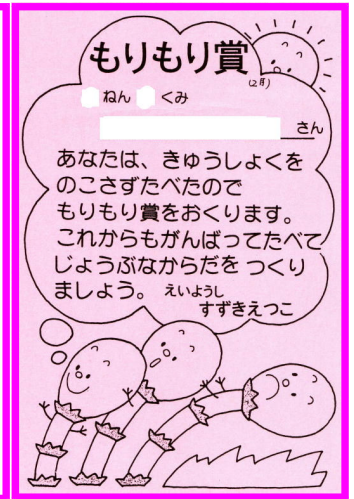 もりもり賞
(2月)
ねん くみ
さん
あなたは、きゅうしょくを
のこさずたべたので
もりもり賞をおくります。
これからもがんばってたべて
じょうぶなからだを つくり
ましょう。 えいようし
すずきえつこ